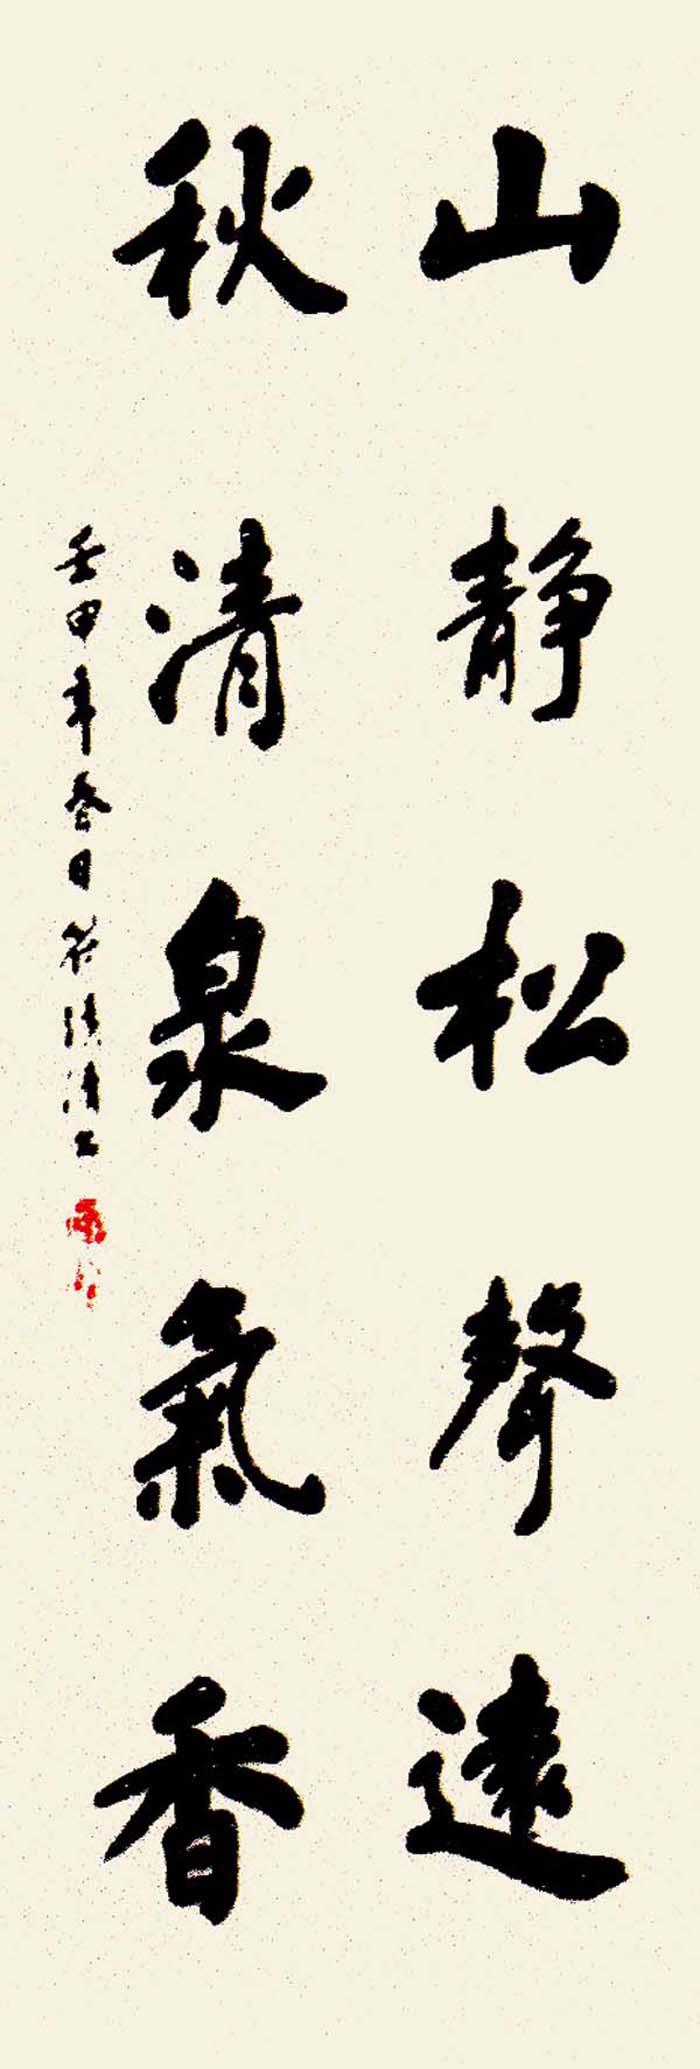 山静松聲遠
秋清泉氣香
壬申年冬日